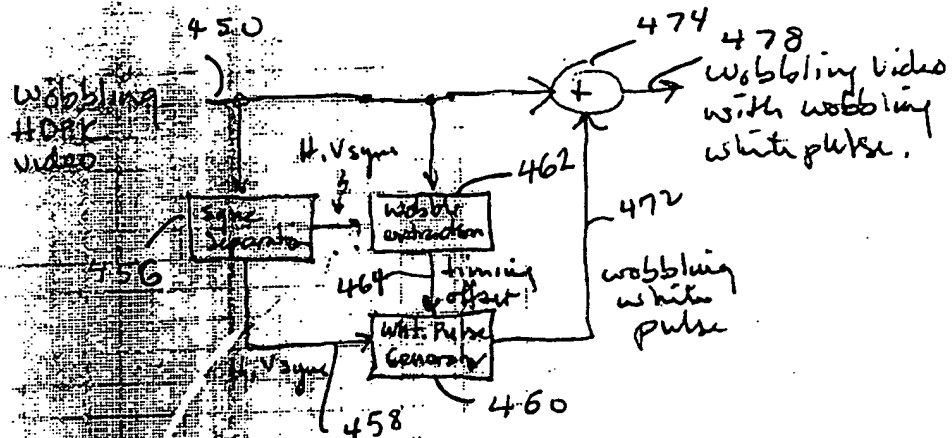 450
474
478
wobbling
HDRK
video
wobbling video
with wobbling
white pulse.
H, Vsync
462
Sync
Separator
wobble
extraction
472
456
464
timing
offset
wobbling
white
pulse
Wht. Pulse
Generator
H, Vsync
460
458
+